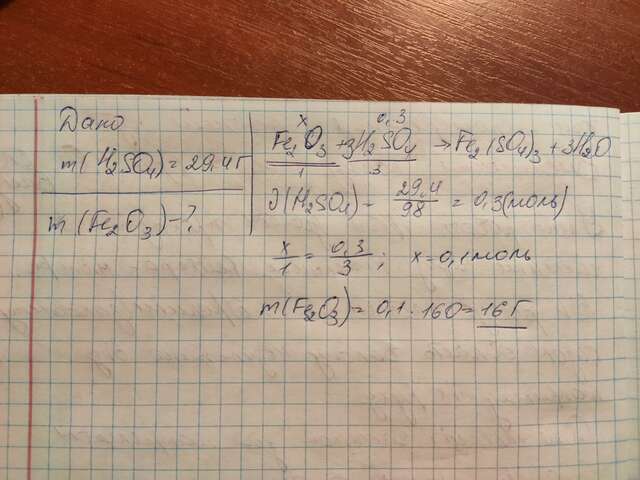 Дано
m(H₂SO₄) = 29,4г
m(Fe₂O₃) - ?
x 0,3
Fe₂O₃ + 3H₂SO₄ → Fe₂(SO₄)₃ + 3H₂O
1 3
ν(H₂SO₄) - 29,4/98 = 0,3(моль)
x/1 = 0,3/3 ; x = 0,1 моль
m(Fe₂O₃) = 0,1 · 160 = 16г